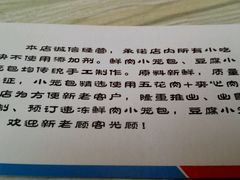 本店诚信经营，承诺店内所有小吃
决不使用添加剂。鲜肉小笼包、豆腐小
笼包均传统手工制作。原料新鲜，质量
证，小笼包精选使用五花肉+夹心肉
店为方便新老客户，隆重推出、出售
制、预订速冻鲜肉小笼包，豆腐小
欢迎新老顾客光顾！